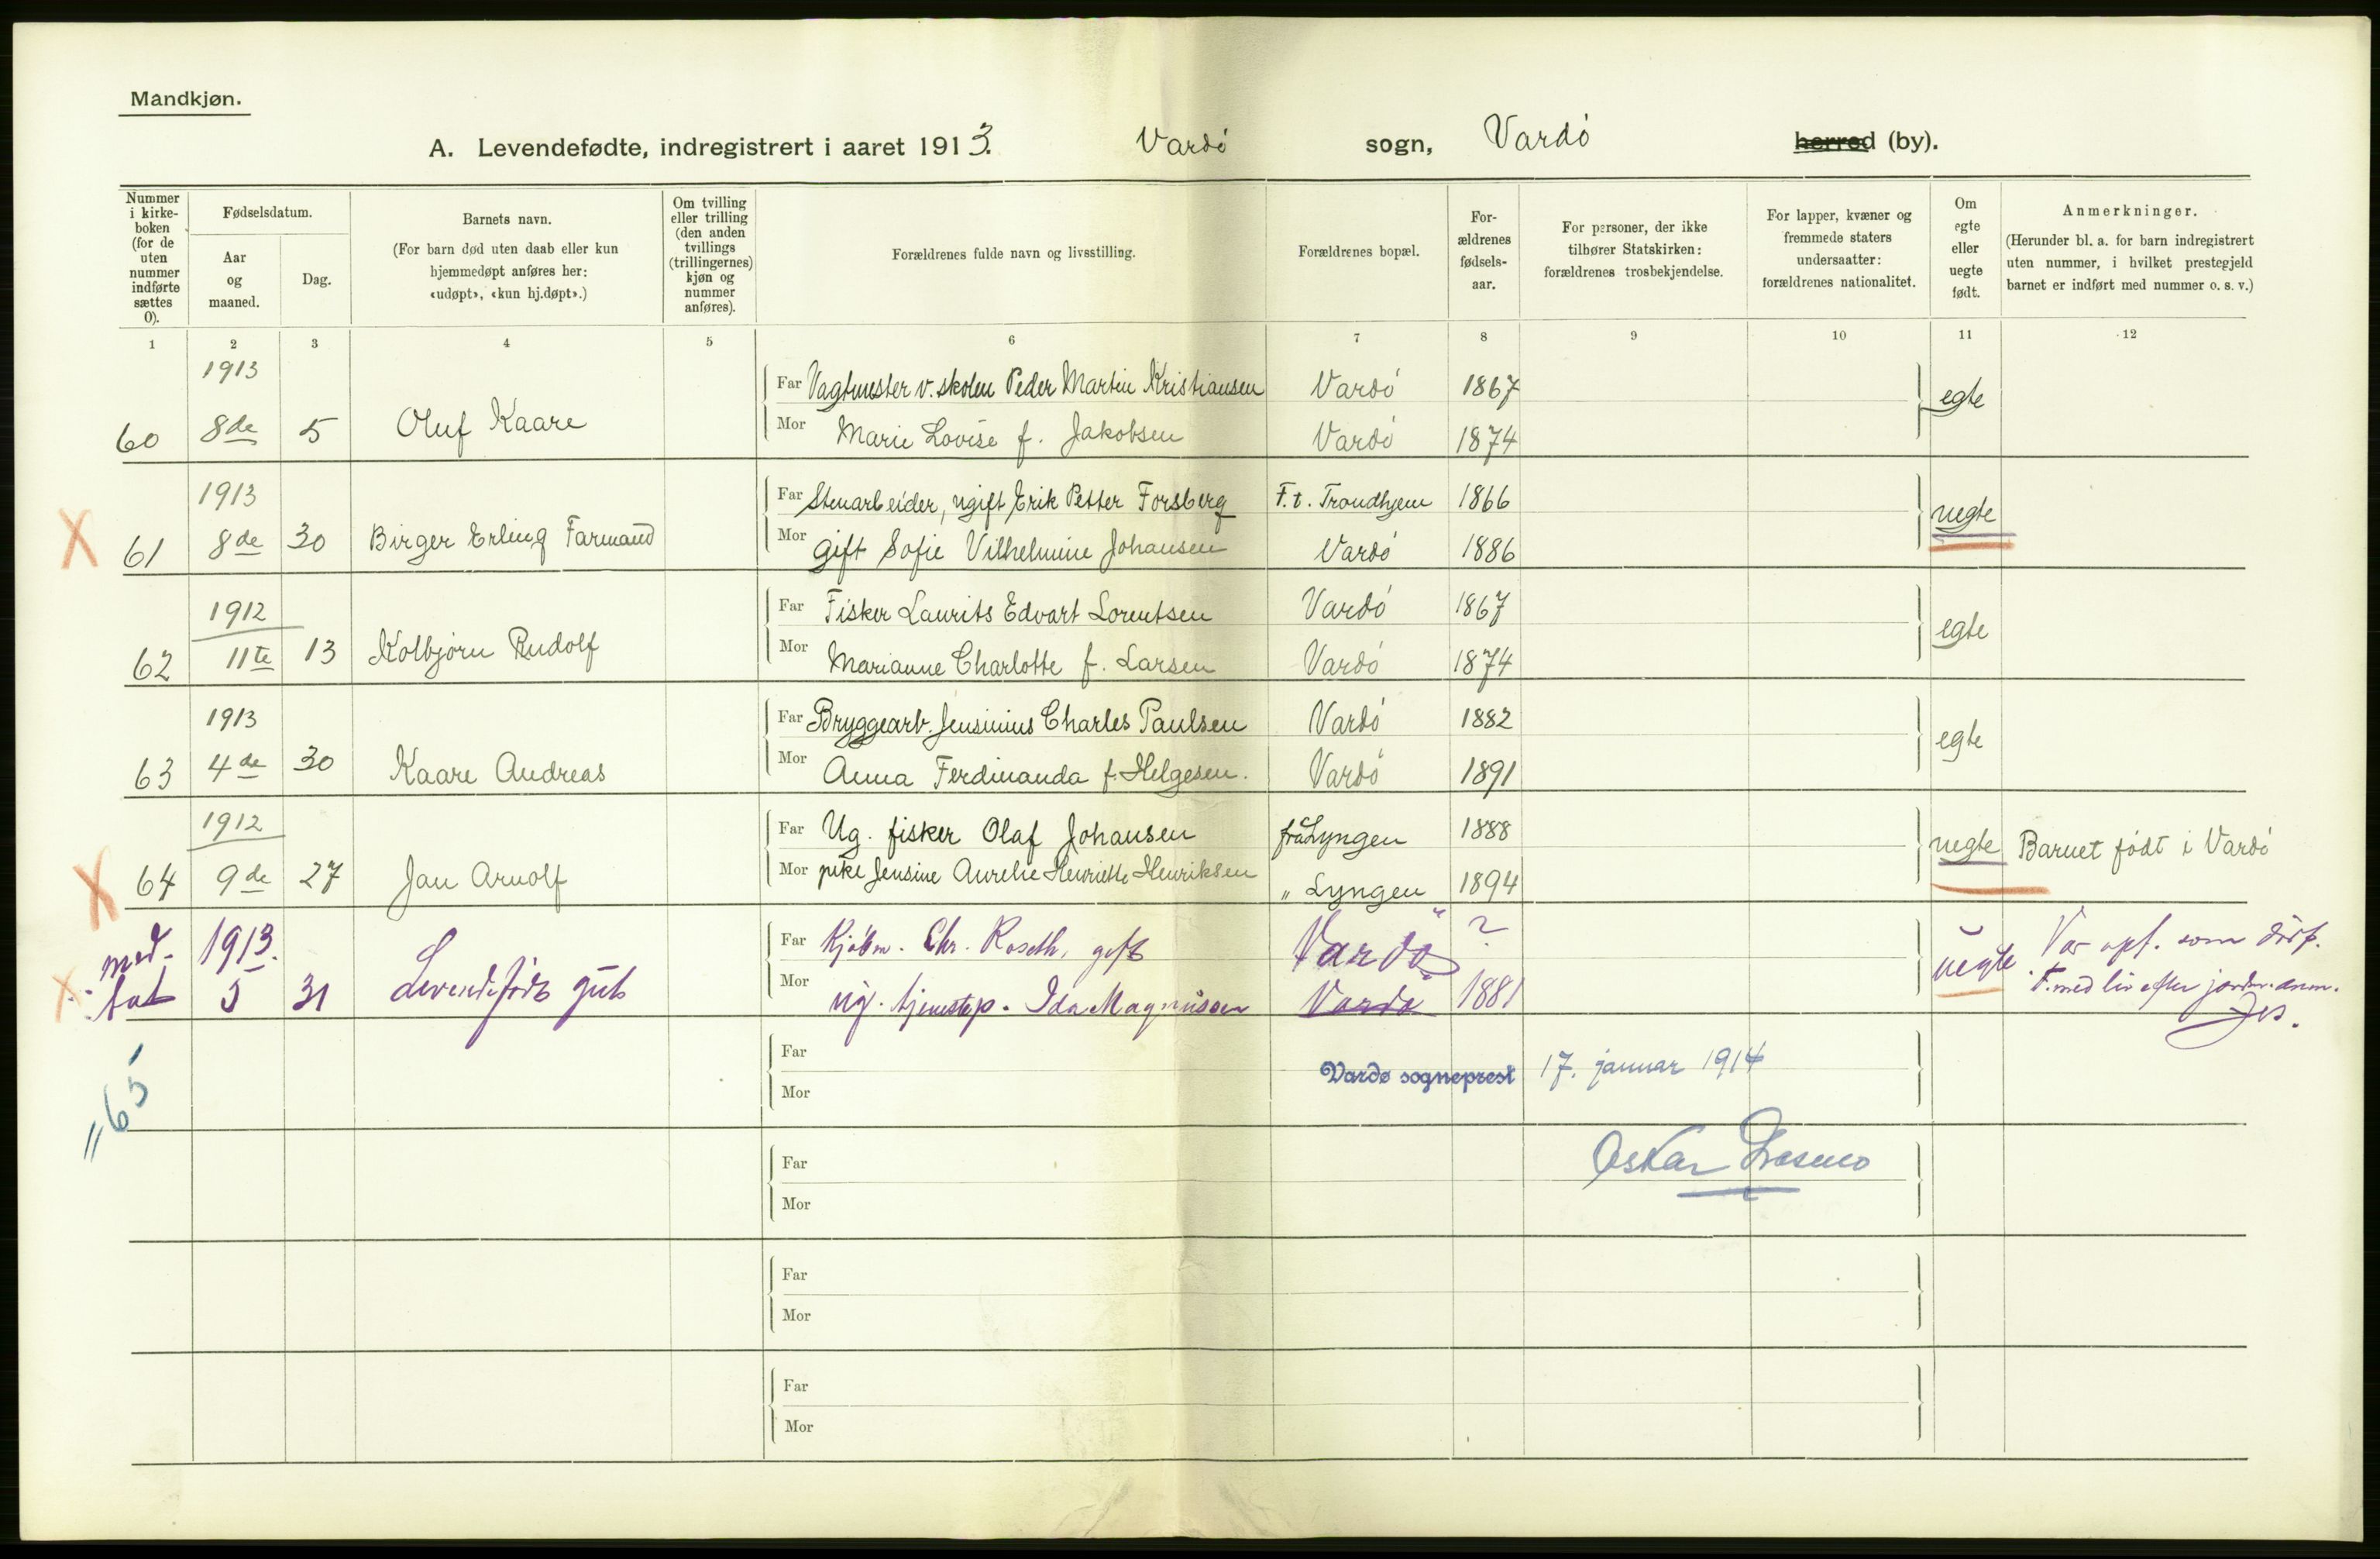 Mandkjøn.
A. Levendefødte, indregistrert i aaret 1913. Vardö sogn, Vardö herred (by).
Nummer i kirke-boken (for de uten nummer indførte sættes 0).
Fødselsdatum.
Aar og maaned.
Dag.
Barnets navn.
(For barn død uten daab eller kun hjemmedøpt anføres her: «udøpt», «kun hj.døpt».)
Om tvilling eller trilling (den anden tvillings (trillingernes) kjøn og nummer anføres).
Forældrenes fulde navn og livsstilling.
Forældrenes bopæl.
For-ældrenes fødsels-aar.
For personer, der ikke tilhører Statskirken: forældrenes trosbekjendelse.
For lapper, kvæner og fremmede staters undersaatter: forældrenes nationalitet.
Om egte eller uegte født.
Anmerkninger.
(Herunder bl. a. for barn indregistrert uten nummer, i hvilket prestegjeld barnet er indført med nummer o. s. v.)
1 2 3 4 5 6 7 8 9 10 11 12
1913 Far Vagtmester v. skolen Peder Martin Kristiansen Vardö 1867 egte
60 8de 5 Oluf Kaare Mor Marie Lovise f. Jakobsen Vardö 1874
1913 Far Stenarbeider, ugift Erik Petter Forsberg F.t. Trondhjem 1866 uegte
X 61 8de 30 Birger Erling Farmand Mor gift Sofie Vilhelmine Johansen Vardö 1886
1912 Far Fisker Laurits Edvart Lorentsen Vardö 1867 egte
62 11te 13 Kolbjörn Rudolf Mor Marianne Charlotte f. Larsen Vardö 1874
1913 Far Bryggearb. Jensinius Charles Paulsen Vardö 1882 egte
63 4de 30 Kaare Andreas Mor Anna Ferdinanda f. Helgesen. Vardö 1891
1912 Far Ug. fisker Olaf Johansen fra Lyngen 1888 uegte Barnet födt i Vardö
X 64 9de 27 Jan Arnolf Mor pike Jensine Aurelie Henriette Henriksen " Lyngen 1894
med- 1913. Far Kjöbm. Chr. Roseth, gift Vardö ? uegte Var opf. som dödf.
X tat 5 31 Levendefödt gut Mor ug. tjenestep. Ida Magnussen Vardö 1881 F. med liv efter jordm. anm.
" 65
Far Vardø sogneprest 17. januar 1914
Mor
Far Oskar
Mor
Far
Mor
Far
Mor